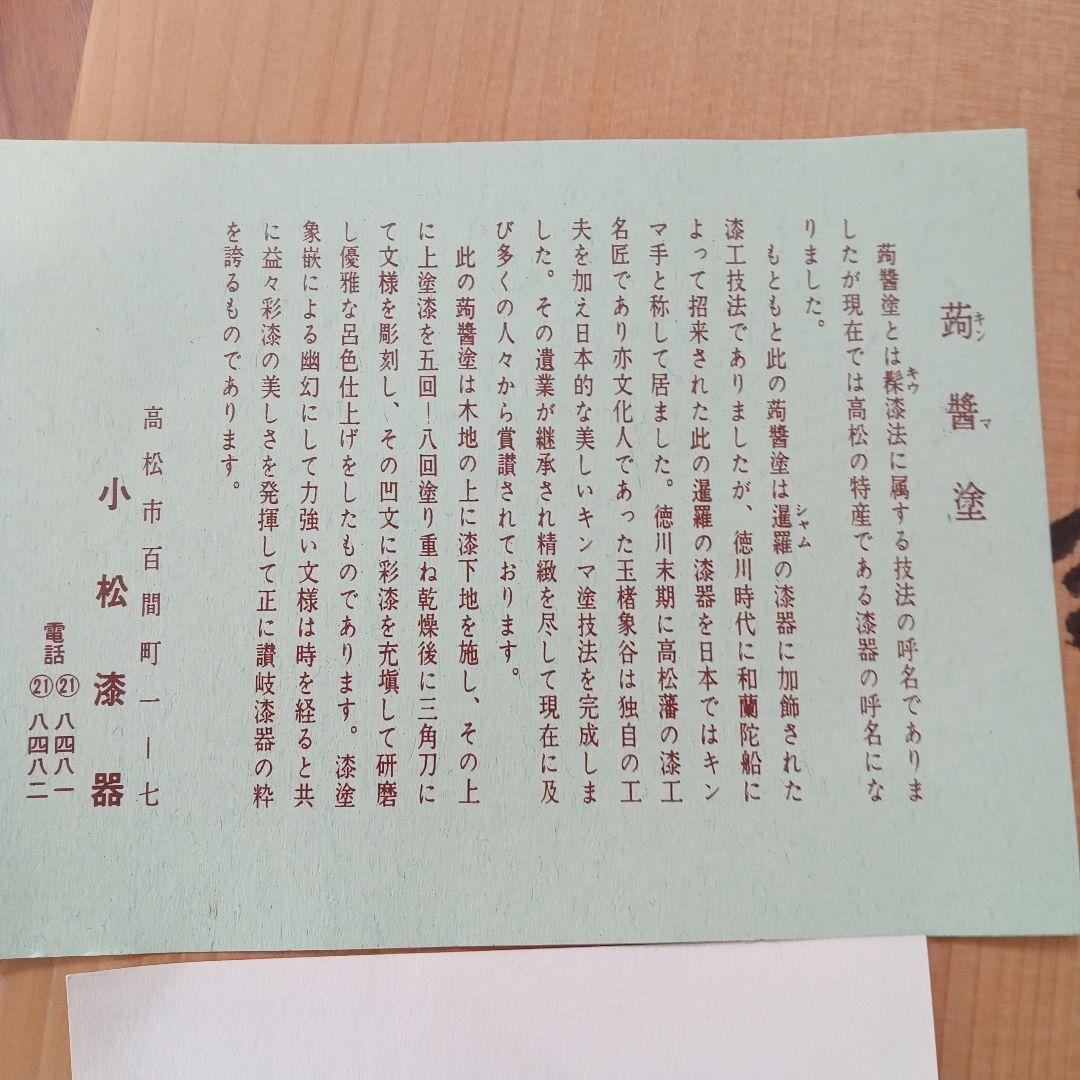 蒟醬塗
キンマ
蒟醬塗とは髹漆法に属する技法の呼名でありま
キウ
したが現在では高松の特産である漆器の呼名にな
りました。
もともと此の蒟醬塗は暹羅の漆器に加飾された
シャム
漆工技法でありましたが、徳川時代に和蘭陀船に
よって招来された此の暹羅の漆器を日本ではキン
マ手と称して居ました。徳川末期に高松藩の漆工
名匠であり亦文化人であった玉楮象谷は独自の工
夫を加え日本的な美しいキンマ塗技法を完成しま
した。その遺業が継承され精緻を尽して現在に及
び多くの人々から賞讃されております。
此の蒟醬塗は木地の上に漆下地を施し、その上
に上塗漆を五回ー八回塗り重ね乾燥後に三角刀に
て文様を彫刻し、その凹文に彩漆を充塡して研磨
し優雅な呂色仕上げをしたものであります。漆塗
象嵌による幽幻にして力強い文様は時を経ると共
に益々彩漆の美しさを発揮して正に讃岐漆器の粋
を誇るものであります。
高松市百間町一ー七
小松漆器
電話㉑八四八一
㉑八四八二